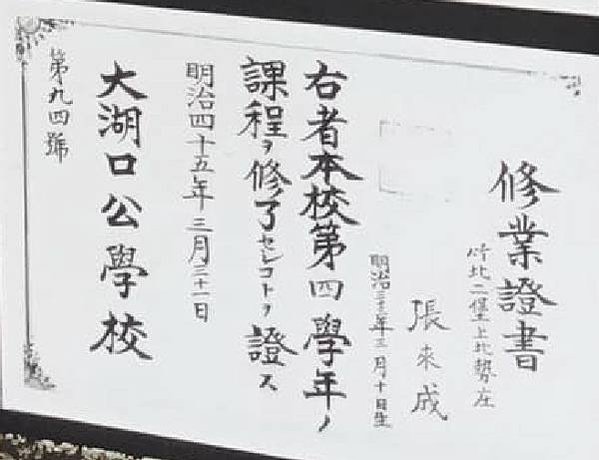 修業證書
竹北二堡上北勢庄
張來成
明治三十三年三月十日生
右者本校第四學年ノ
課程ヲ修了セシコトヲ證ス
明治四十五年三月三十一日
大湖口公學校
第九四號